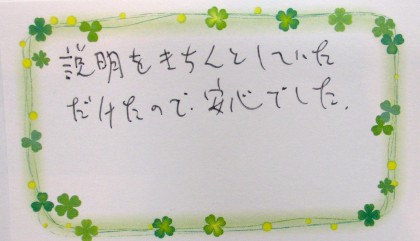 説明をきちんとしていた
だけたので、安心でした。